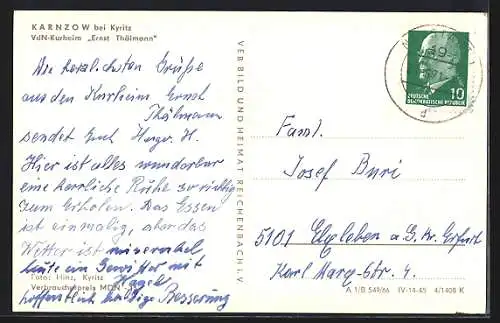 KARNZOW bei Kyritz
VdN-Kurheim „Ernst Thälmann"
Die herzlichsten Grüße
aus den Kurheim Ernst
Thälmann
sendet Euch H.
Hier ist alles wunderbar
eine herrliche Ruhe so richtig
zum Erholen. Das Essen
ist einmalig, aber das
Wetter ist miserabel
heute ein Gewitter mit
Hagel
hoffentlich baldige Besserung
Foto: Hinz, Kyritz
Verbraucherpreis MDN
VEB BILD UND HEIMAT REICHENBACH i. V.
10
DEUTSCHE
DEMOKRATISCHE REPUBLIK
Faml.
Josef Buri
5101 Elxleben a. G. Kr. Erfurt
Karl Marx-Str. 4.
A 1/B 549/66 IV-14-45 4/1408 K